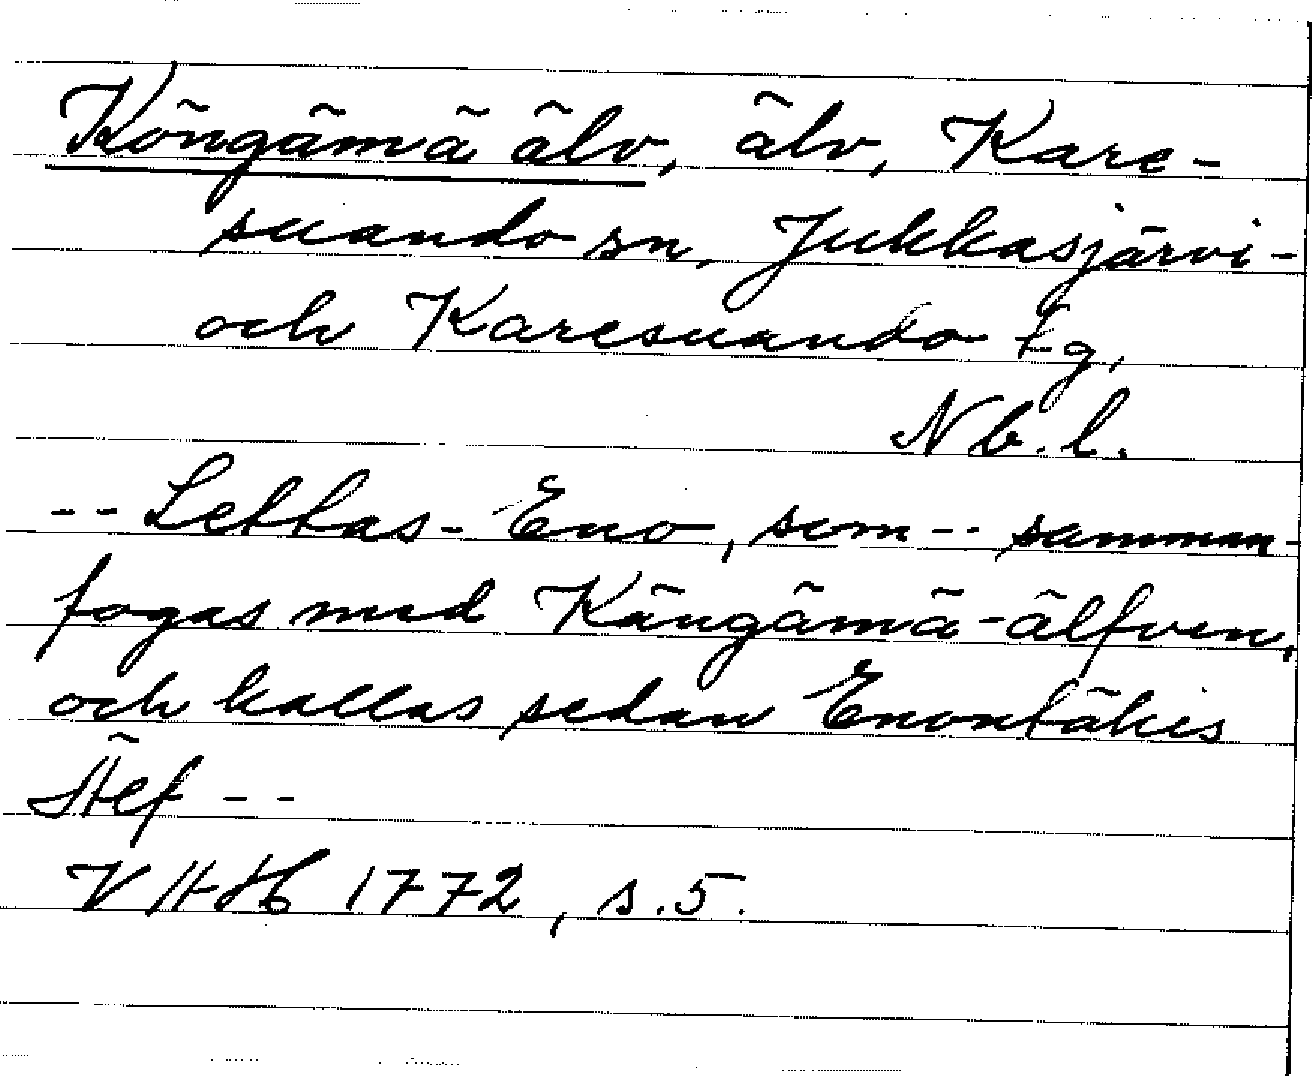 Köngämä älv, älv, Kare-
suando sn, Jukkasjärvi-
och Karesuando tg,
Nb. l.
-- Lettas-Eno, som -- samman-
fogas med Kängämä-älfven,
och kallas sedan Enontäkis
Älf --
VHAH 1772, s.5.